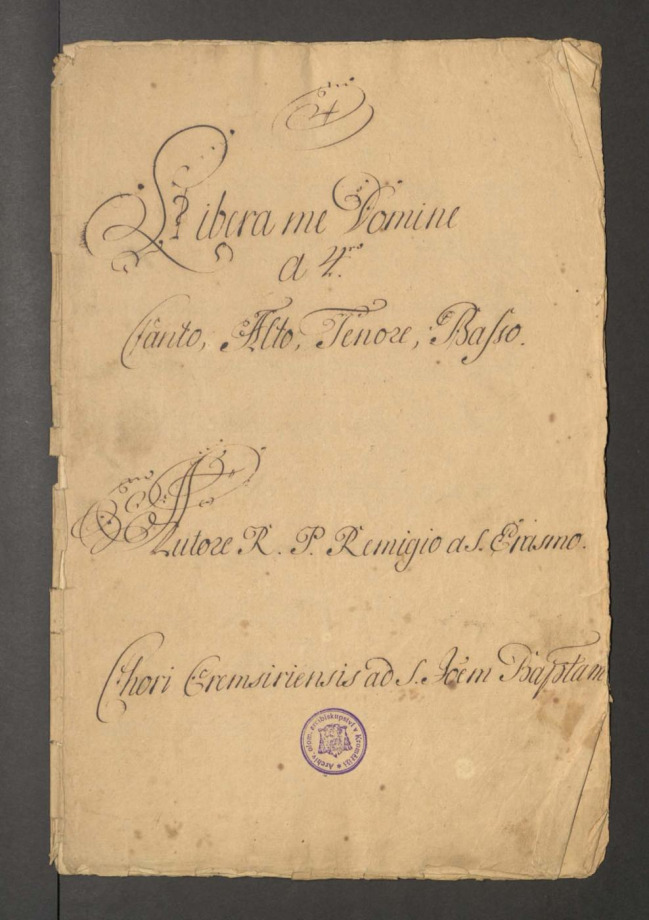 4
Libera me Domine
a 4.ro
Canto, Alto, Tenore, Basso.
Autore R. P. Remigio a S. Erasmo.
Chori Cremsiriensis ad S. Joem Baptam
Archiv olom. arcibiskupství v Kroměříži